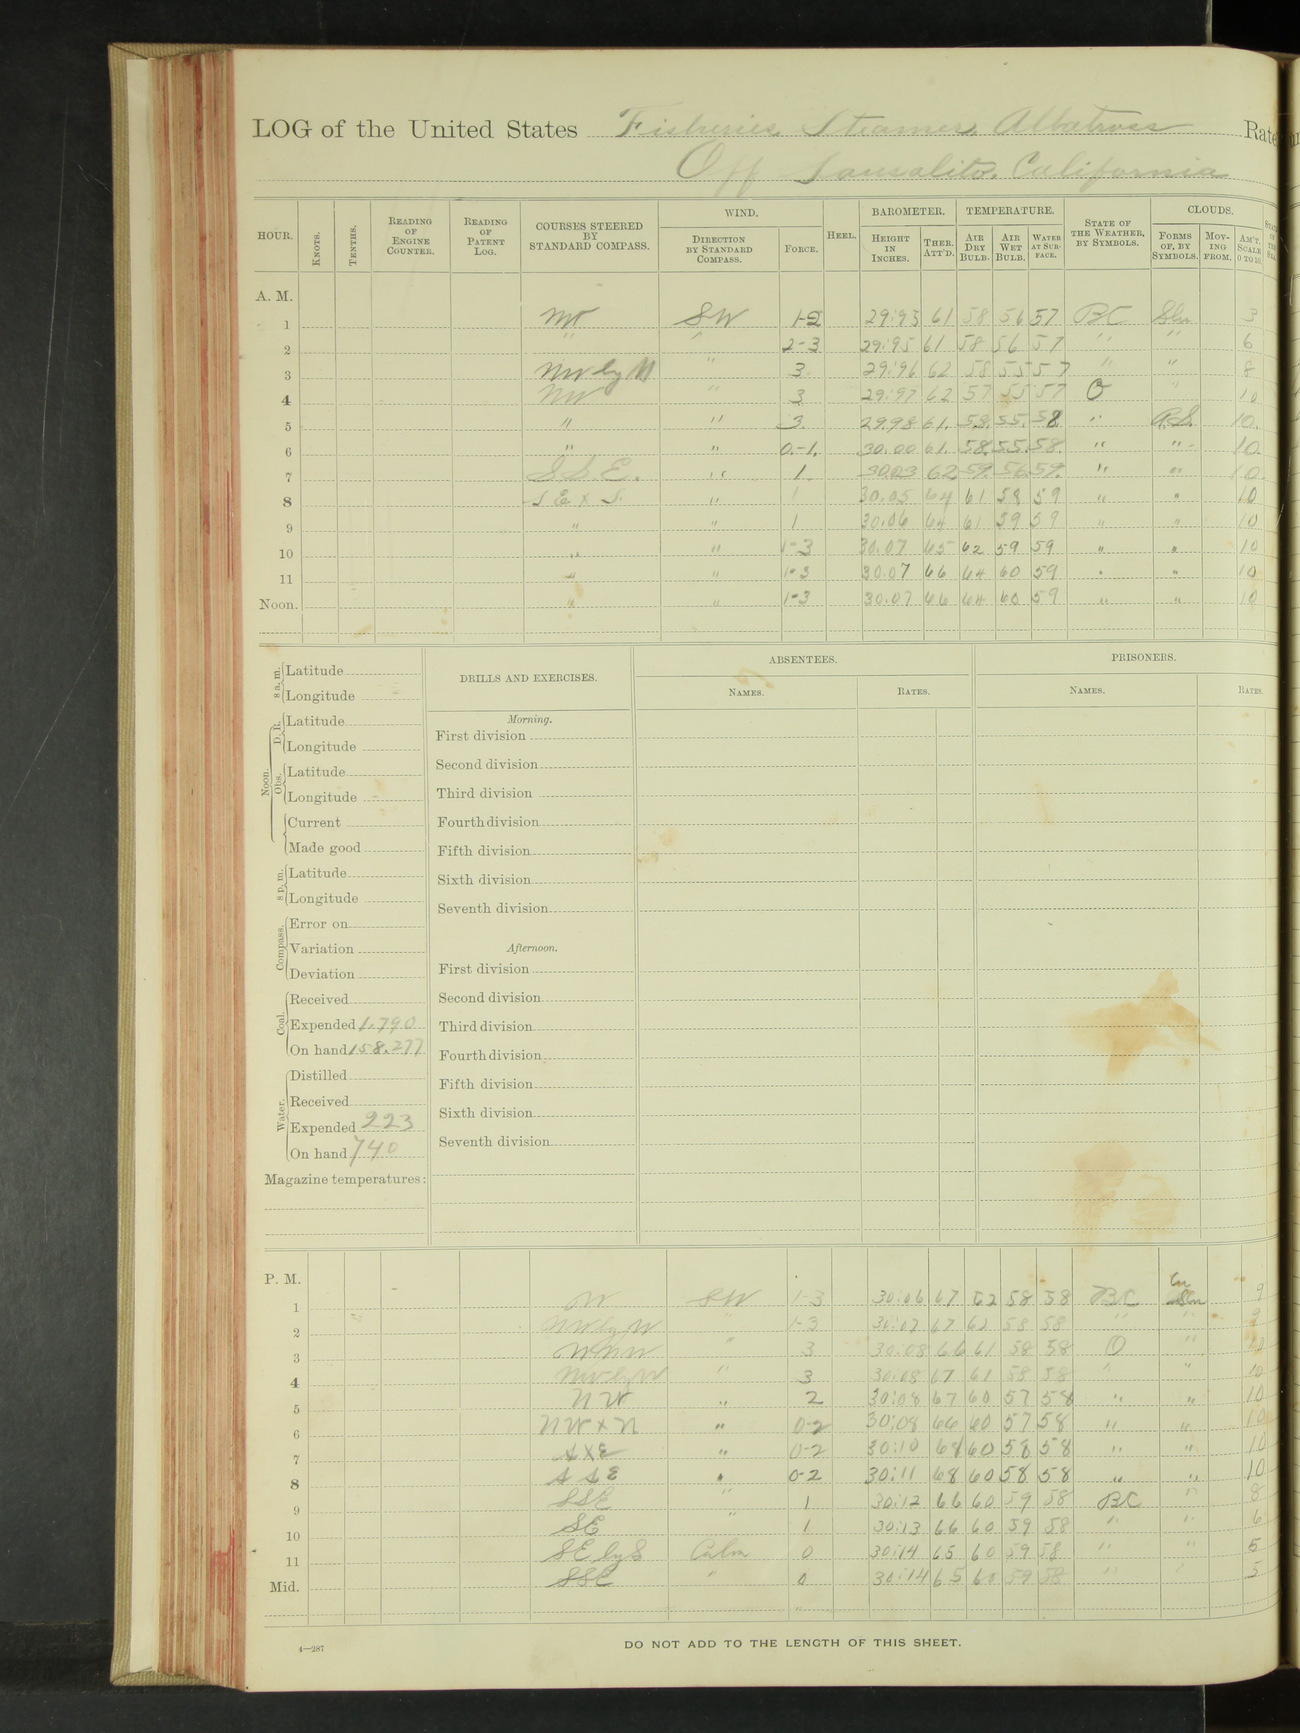 LOG of the United States Fisheries Steamer Albatross Rate
Off Sausalito, California
HOUR. KNOTS. TENTHS. READING OF ENGINE COUNTER. READING OF PATENT LOG. COURSES STEERED BY STANDARD COMPASS. WIND. DIRECTION BY STANDARD COMPASS. FORCE. HEEL. BAROMETER. HEIGHT IN INCHES. THER. ATT'D. TEMPERATURE. AIR DRY BULB. AIR WET BULB. WATER AT SURFACE. STATE OF THE WEATHER, BY SYMBOLS. CLOUDS. FORMS OF, BY SYMBOLS. MOVING FROM. AM'T, SCALE 0 TO 10.
A. M.
1 NW SW 1-2 29.93 61 58 56 57 BC 3
2 " " 2-3 29.95 61 58 56 57 " " 6
3 NW by N " 3 29.96 62 58 55 57 " " 8
4 NW " 3 29.97 62 57 55 57 O " 10
5 " " 3. 29.98 61. 58. 55. 58 " 10.
6 " " 0.-1. 30.00 61. 58. 55. 58. " " 10.
7 S.S.E. " 1. 30.03 62 59. 56. 59. " " 10.
8 S E x S. " 1 30.05 64 61 58 59 " " 10
9 " " 1 30.06 64 61 59 59 " " 10
10 " " 1-3 30.07 65 62 59 59 " " 10
11 " " 1-3 30.07 66 64 60 59 " " 10
Noon. " " 1-3 30.07 66 64 60 59 " " 10
8 a. m. Latitude
Longitude
Noon. D. R. Latitude
Longitude
Obs. Latitude
Longitude
Current
Made good
8 p. m. Latitude
Longitude
Compass. Error on
Variation
Deviation
Coal. Received
Expended 1.790
On hand 158.277
Water. Distilled
Received
Expended 223
On hand 740
Magazine temperatures:
DRILLS AND EXERCISES.
Morning.
First division
Second division
Third division
Fourth division
Fifth division
Sixth division
Seventh division
Afternoon.
First division
Second division
Third division
Fourth division
Fifth division
Sixth division
Seventh division
ABSENTEES.
NAMES. RATES.
PRISONERS.
NAMES. RATES.
P. M.
1 W SW 1-3 30.06 67 62 58 58 BC Cu 9
2 NW by W " 1-3 30.07 67 62 58 58 " " 9
3 WNW " 3 30.08 66 61 58 58 O " 10
4 NW by W " 3 30.08 67 61 58 58 " " 10
5 NW " 2 30.08 67 60 57 58 " " 10
6 NW x N " 0-2 30.08 66 60 57 58 " " 10
7 S X E " 0-2 30.10 68 60 58 58 " " 10
8 S S E " 0-2 30.11 68 60 58 58 " " 10
9 SSE " 1 30.12 66 60 59 58 BC " 8
10 SE " 1 30.13 66 60 59 58 " " 6
11 SE by S Calm 0 30.14 65 60 59 58 " " 5
Mid. SSE " 0 30.14 65 60 59 58 " " 5
4—287
DO NOT ADD TO THE LENGTH OF THIS SHEET.